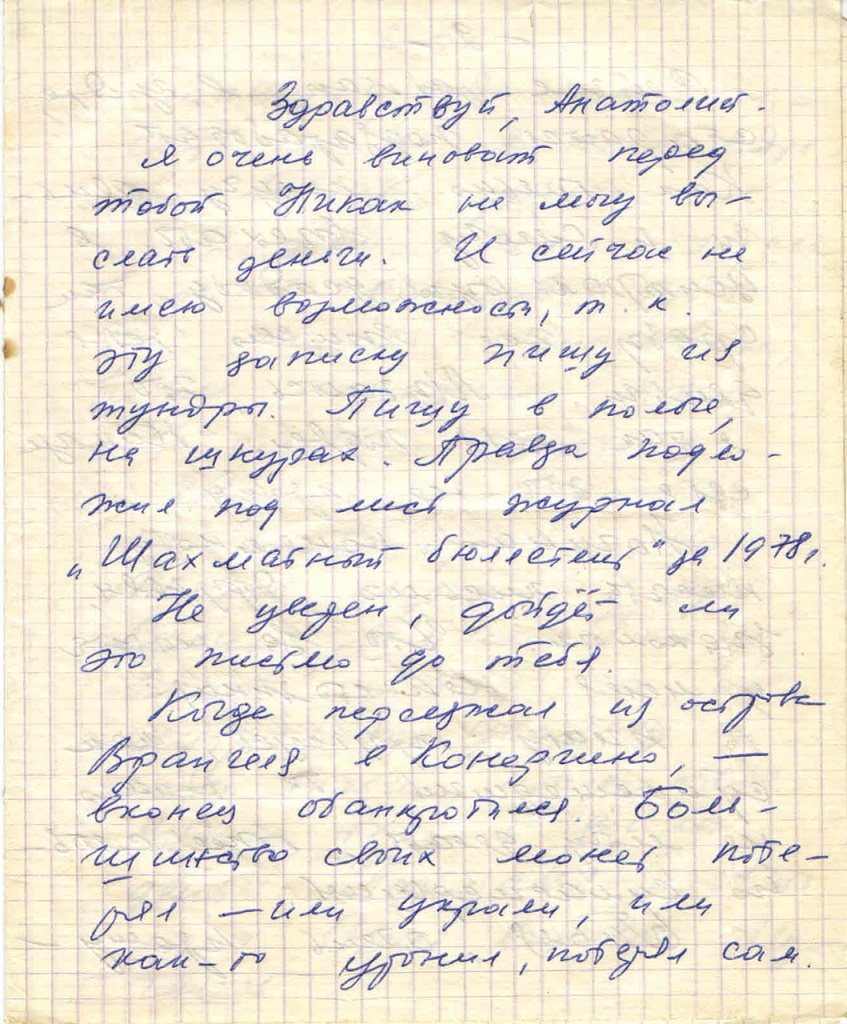 Здравствуй, Анатолий.
Я очень виноват перед
тобой. Никак не могу вы-
слать деньги. И сейчас не
имею возможности, т. к.
эту записку пишу из
тундры. Пишу в пологе,
на шкурах. Правда подло-
жил под лист журнал
„Шахматный бюллетень" за 1978 г.
Не уверен, дойдёт ли
это письмо до тебя.
Когда переезжал из острова
Врангеля в Конергино, —
вконец обанкротился. Боль-
шинство своих монет поте-
рял — или украли, или
как-то уронил, потерял сам.